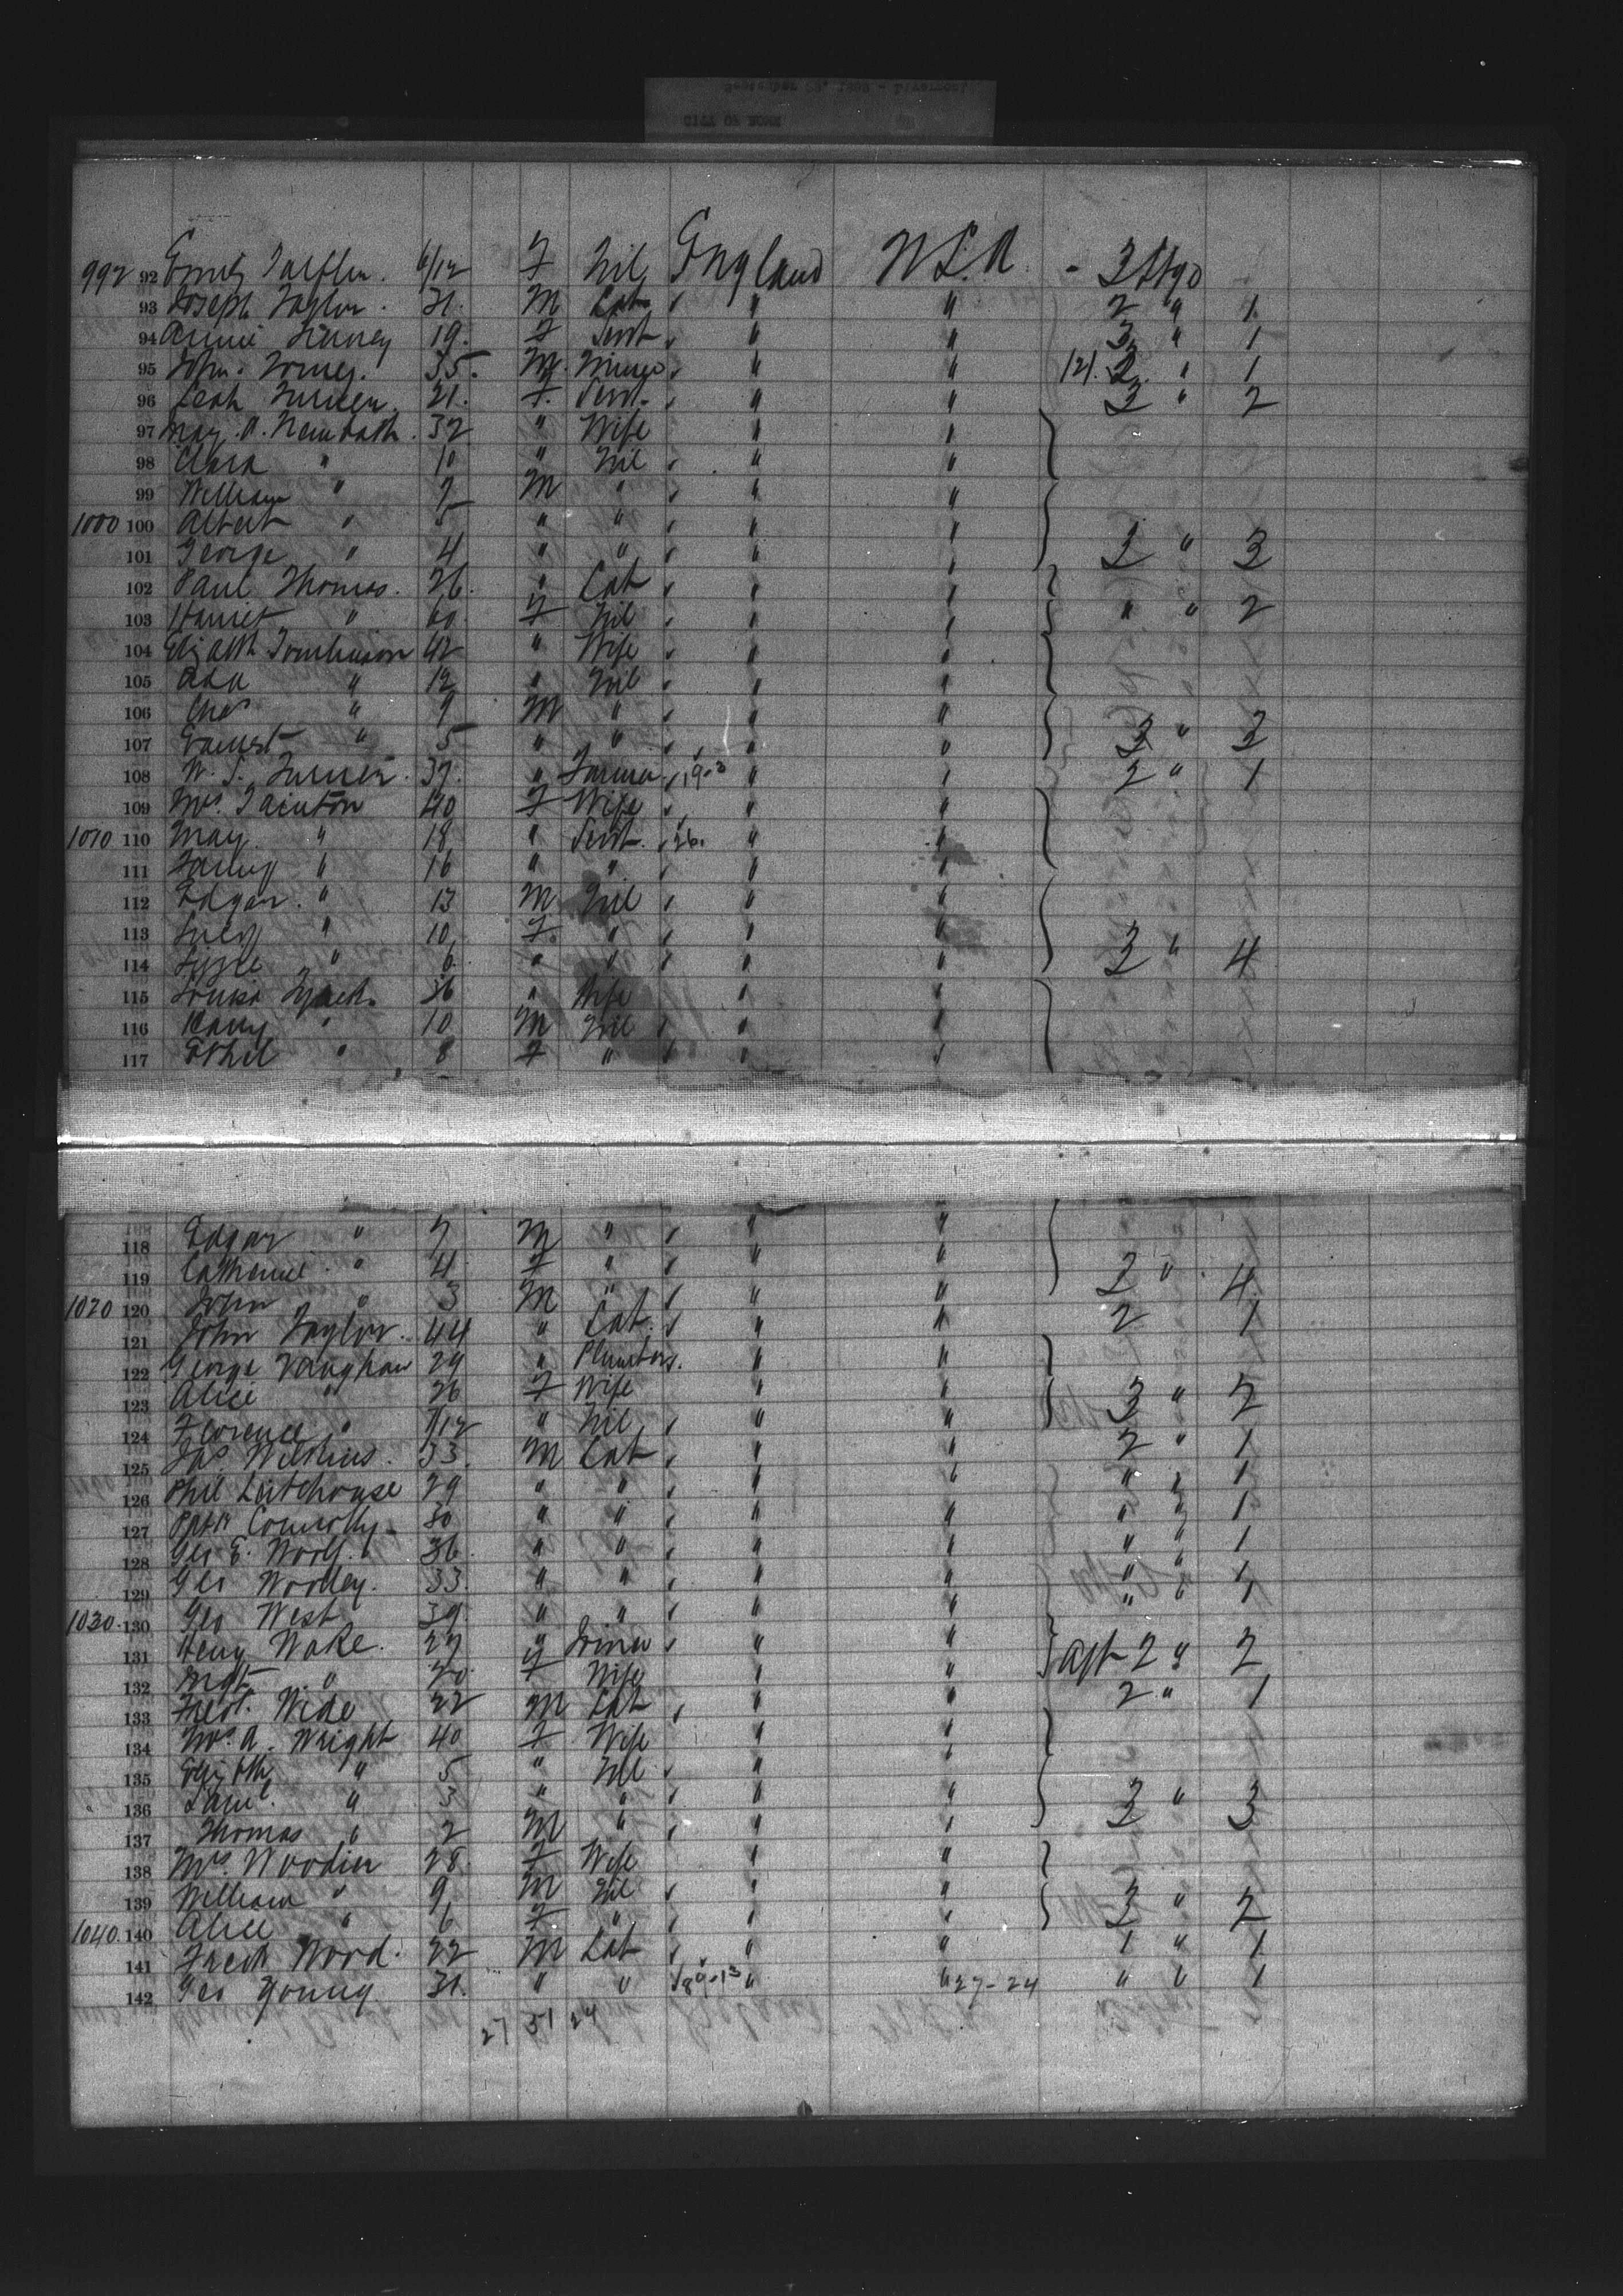 CITY OF ROME
992 92 Emily 6/12 F Nil England U.S.A. - 3 Stge
93 Joseph Taylor. 31. M Lab " " 2 " 1
94 Annie 19. F Servt " " 3 " 1
95 John 35. M. Miner " " 2 " 1
96 Leah Turner 21. F. Servt. " " 3 " 2
97 32 " Wife " "
98 Clara " 10 " Nil " "
99 William " 7 M " " "
1000 100 Albert " 5 " " " "
101 George " 4 " " " " 3 " 3
102 Paul Thomas. 26. " Lab " "
103 Harriet " 60. F Nil " " " " 2
104 Elizabth Tomlinson 42 " Wife " "
105 Ada " 12 " Nil " "
106 Chas " 9 M " " "
107 Earnest " 5 " " " " 3 " 3
108 W. S. Turner. 37. " Farmer 19-3 " " 2 " 1
109 Mrs. Tainton 40 F Wife " "
1010 110 May " 18 " Servt. 26. " "
111 Fanny " 16 " " " "
112 Edgar. " 13 M Nil " "
113 Lucy " 10 F. " " "
114 Lizzie " 6 " " " " 3 " 4
115 Louisa 36 " Wife " "
116 Harry " 10 M Nil " "
117 Ethel " 8 F " " "
118 Edgar " 7 M " " "
119 Catherine " 4 F " " " 3 " 4
1020 120 John " 3 M " " "
121 John Taylor. 44 " Lab. " " 2 1
122 George Vaughan 29 " Plumber " "
123 Alice " 26 F Wife " " 3 " 2
124 Florence " 7/12 " Nil " "
125 Jas Wilkins. 33. M Lab " " 2 " 1
126 Phil 29 " " " " " " 1
127 Patk Connolly 30 " " " " " " 1
128 Geo E. Woolf. 36. " " " " " " 1
129 Geo Woolley. 33. " " " " " " 1
1030. 130 Geo West 39. " " " " " " 1
131 Heny Wake. 27 " " " 2 " 2
132 Mgt " 20. F Wife " "
133 Fredk. Wide 22 M Lab " " 2 " 1
134 Mrs. A. Wright 40 F Wife " "
135 Elizbth " 5 " Nil " "
136 Saml. " 3 " " " " 3 " 3
137 Thomas " 2 M " " "
138 Mrs. Woodin 28. F Wife " "
139 William " 9 M Nil " " 3 " 2
1040. 140 Alice " 6 F " " "
141 Fredk Wood. 22 M Lab " " 1 " 1
142 Geo Young 31. " " " " 27-24 " " 1
27 51 24